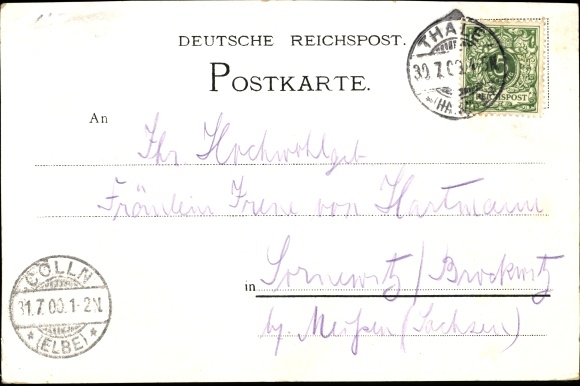 DEUTSCHE REICHSPOST.
POSTKARTE.
THALE
30.7.00
(HARZ)
5
REICHSPOST
An
Ihr Hochwohlgeb
Fräulein Irene von Hartmann
in Sörnewitz/Brockwitz
by Meißen (Sachsen)
CÖLLN
31.7.00.1-2N.
* (ELBE) *